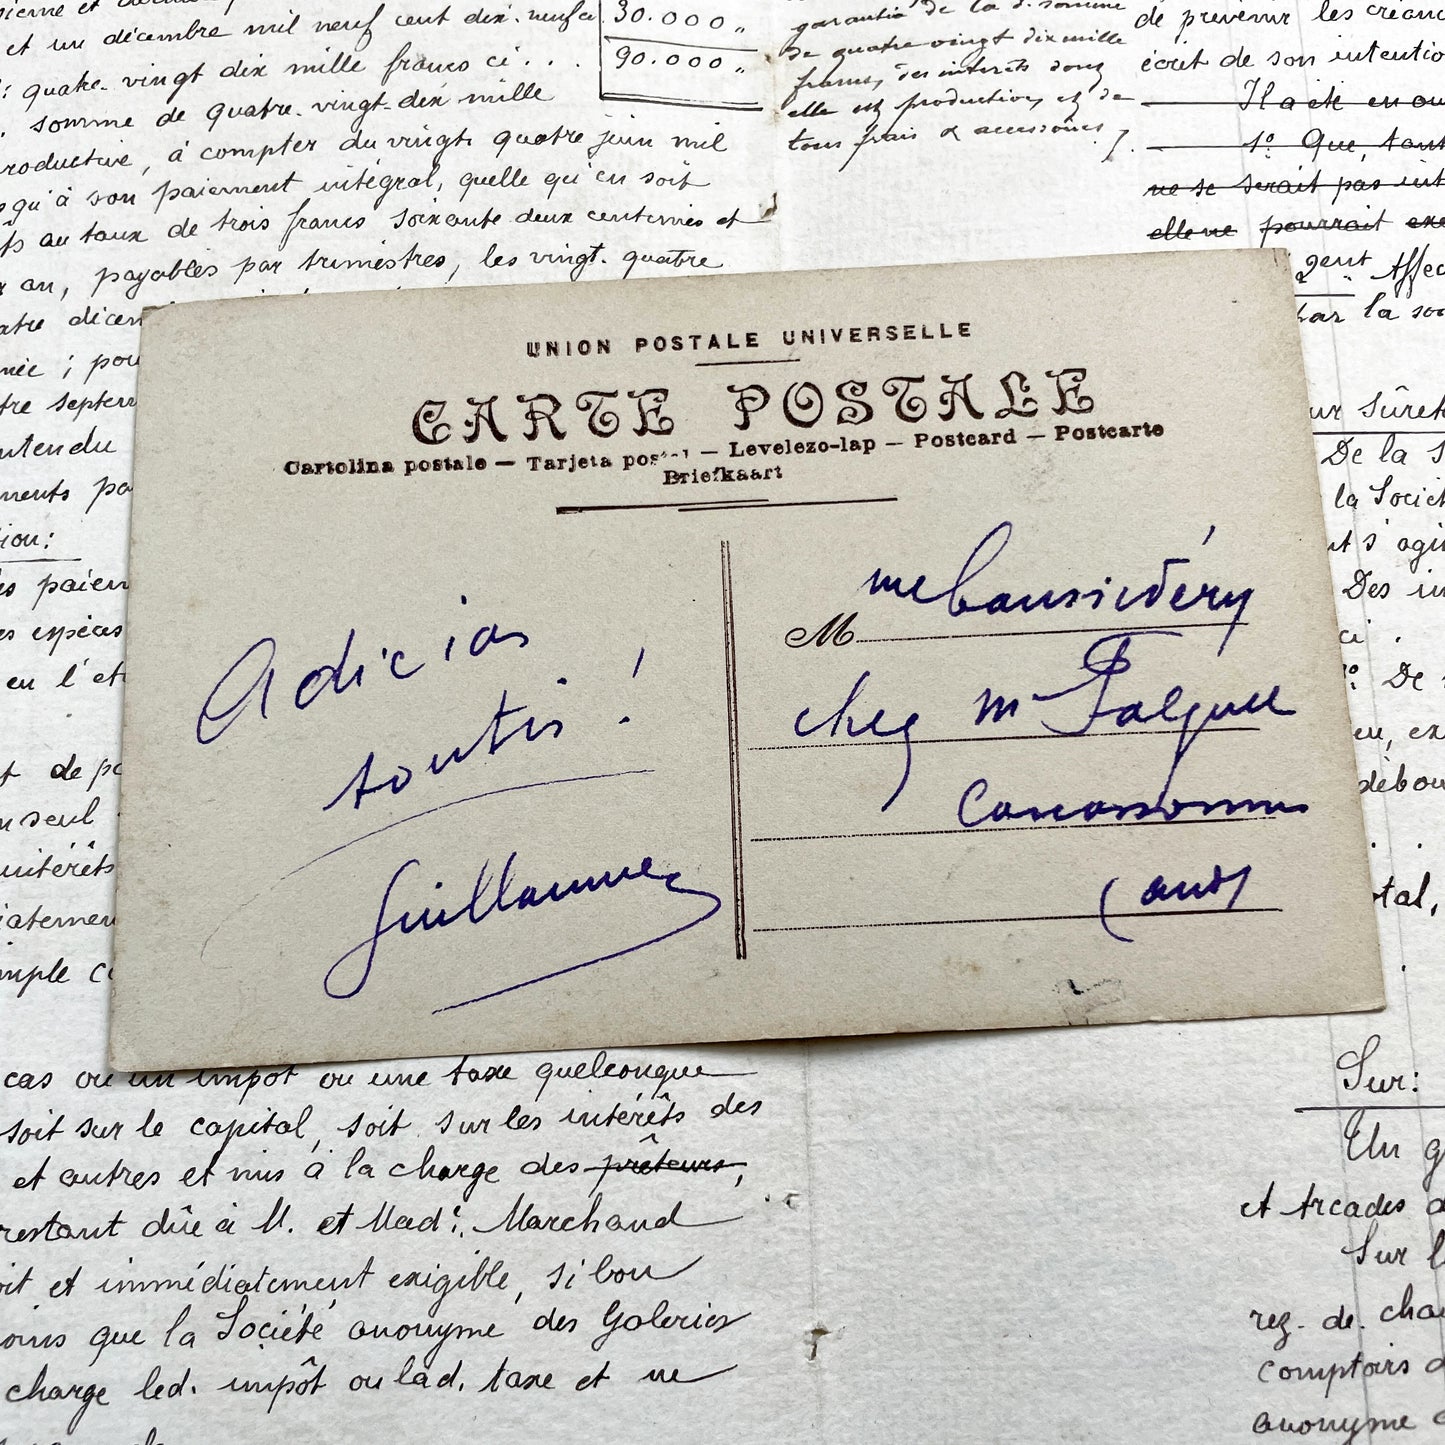 et un décembre mil neuf cent dix-neuf ci
30.000 "
90.000 "
quatre-vingt dix mille francs ci . . .
somme de quatre-vingt-dix mille
productive, à compter du vingt quatre juin mil
qu'à son paiement intégral, quelle qu'en soit
au taux de trois francs soixante deux centimes et
an, payables par trimestres, les vingt-quatre
garantie de la d. somme
de quatre vingt dix mille
francs, des intérêts dont
elle est productive, et de
tous frais & accessoires ./.
de prévenir les créanc
écrit de son intentio
Il a été en ou
1º Que, tant
ne se serait pas int
elle ne pourrait exe
gent Affec
par la soc
ur sûret
De la S
la Sociét
nt s'agi
Des in
ci .
De
eu, ex
débou
otal,
atre décem
née ; pou
tre septem
ntendu
ments pa
ion:
es paiem
es espèces
en l'ét
t de pa
n seul
intérêts
atemen
mple c
UNION POSTALE UNIVERSELLE
CARTE POSTALE
Cartolina postale — Tarjeta postal — Levelezo-lap — Postcard — Postcarte
Briefkaart
Adicias
toutis !
Guillaume
M me Caussidéry
chez Mr Falguee
Carcassonne
(aude)
cas où un impôt ou une taxe quelconque
soit sur le capital, soit sur les intérêts des
et autres et mis à la charge des prêteurs,
restant dûe à M. et Mad.e Marchand
oit et immédiatement exigible, si bon
oins que la Société anonyme des Galeries
charge led. impôt ou lad. taxe et ne
Sur:
Un g
et Arcades d
Sur l
rez-de-chau
comptoirs d
anonyme